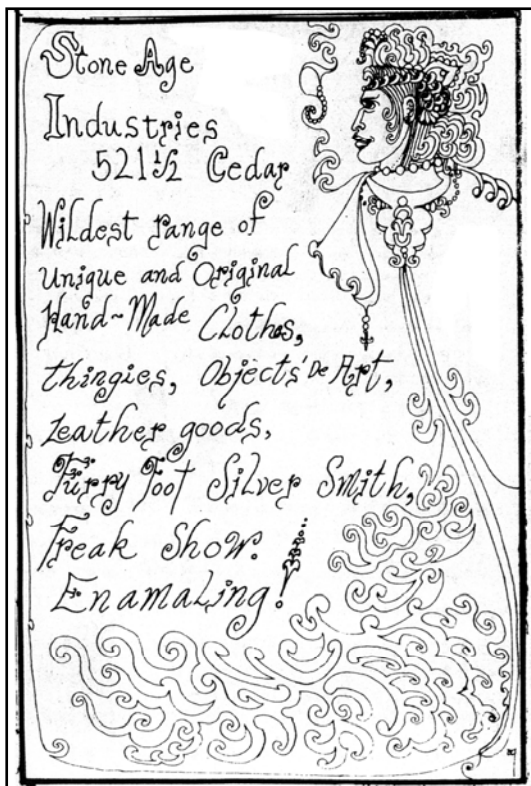 Stone Age
Industries
521½ Cedar
Wildest range of
unique and Original
Hand-Made Clothes,
thingies, Objects' De Art,
Leather goods,
Furry Foot Silver Smith,
Freak Show.
Enamaling!